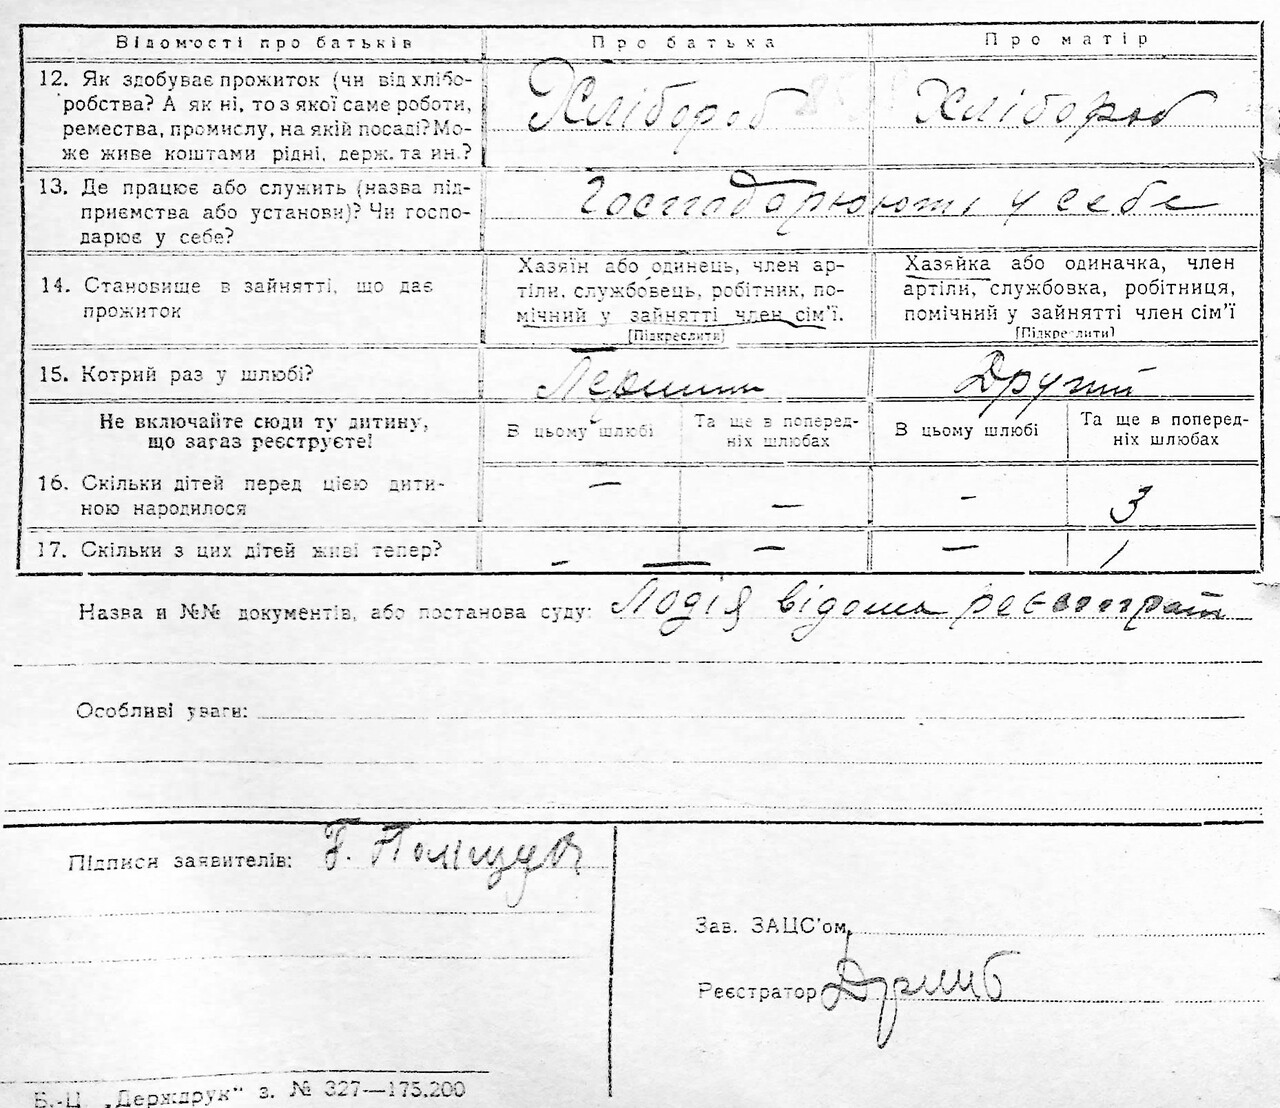 Відомості про батьків
Про батька
Про матір
12. Як здобуває прожиток (чи від хлібо-
робства? А як ні, то з якої саме роботи,
ремества, промислу, на якій посаді? Мо-
же живе коштами рідні, держ. та ин.?
Хлібороб
Хлібороб
13. Де працює або служить (назва під-
приємства або установи)? Чи госпо-
дарює у себе?
Господарюють у себе
14. Становище в зайнятті, що дає
прожиток
Хазяїн або одинець, член ар-
тіли, службовець, робітник, по-
мічний у зайнятті член сім'ї.
[Підкреслити]
Хазяйка або одиначка, член
артіли, службовка, робітниця,
помічний у зайнятті член сім'ї
[Підкреслити]
15. Котрий раз у шлюбі?
Первший
Другий
Не включайте сюди ту дитину,
що зараз реєструєте!
В цьому шлюбі
Та ще в поперед-
ніх шлюбах
В цьому шлюбі
Та ще в поперед-
ніх шлюбах
16. Скільки дітей перед цією дити-
ною народилося
—
—
-
3
17. Скільки з цих дітей живі тепер?
-
—
—
1
Назва й №№ документів, або постанова суду: Подія відома
Особливі уваги:
Підписи заявителів: Г. Поліщук
Зав. ЗАЦС'ом
Реєстратор
Б.-Ц. „Держдрук" з. № 327—175.200